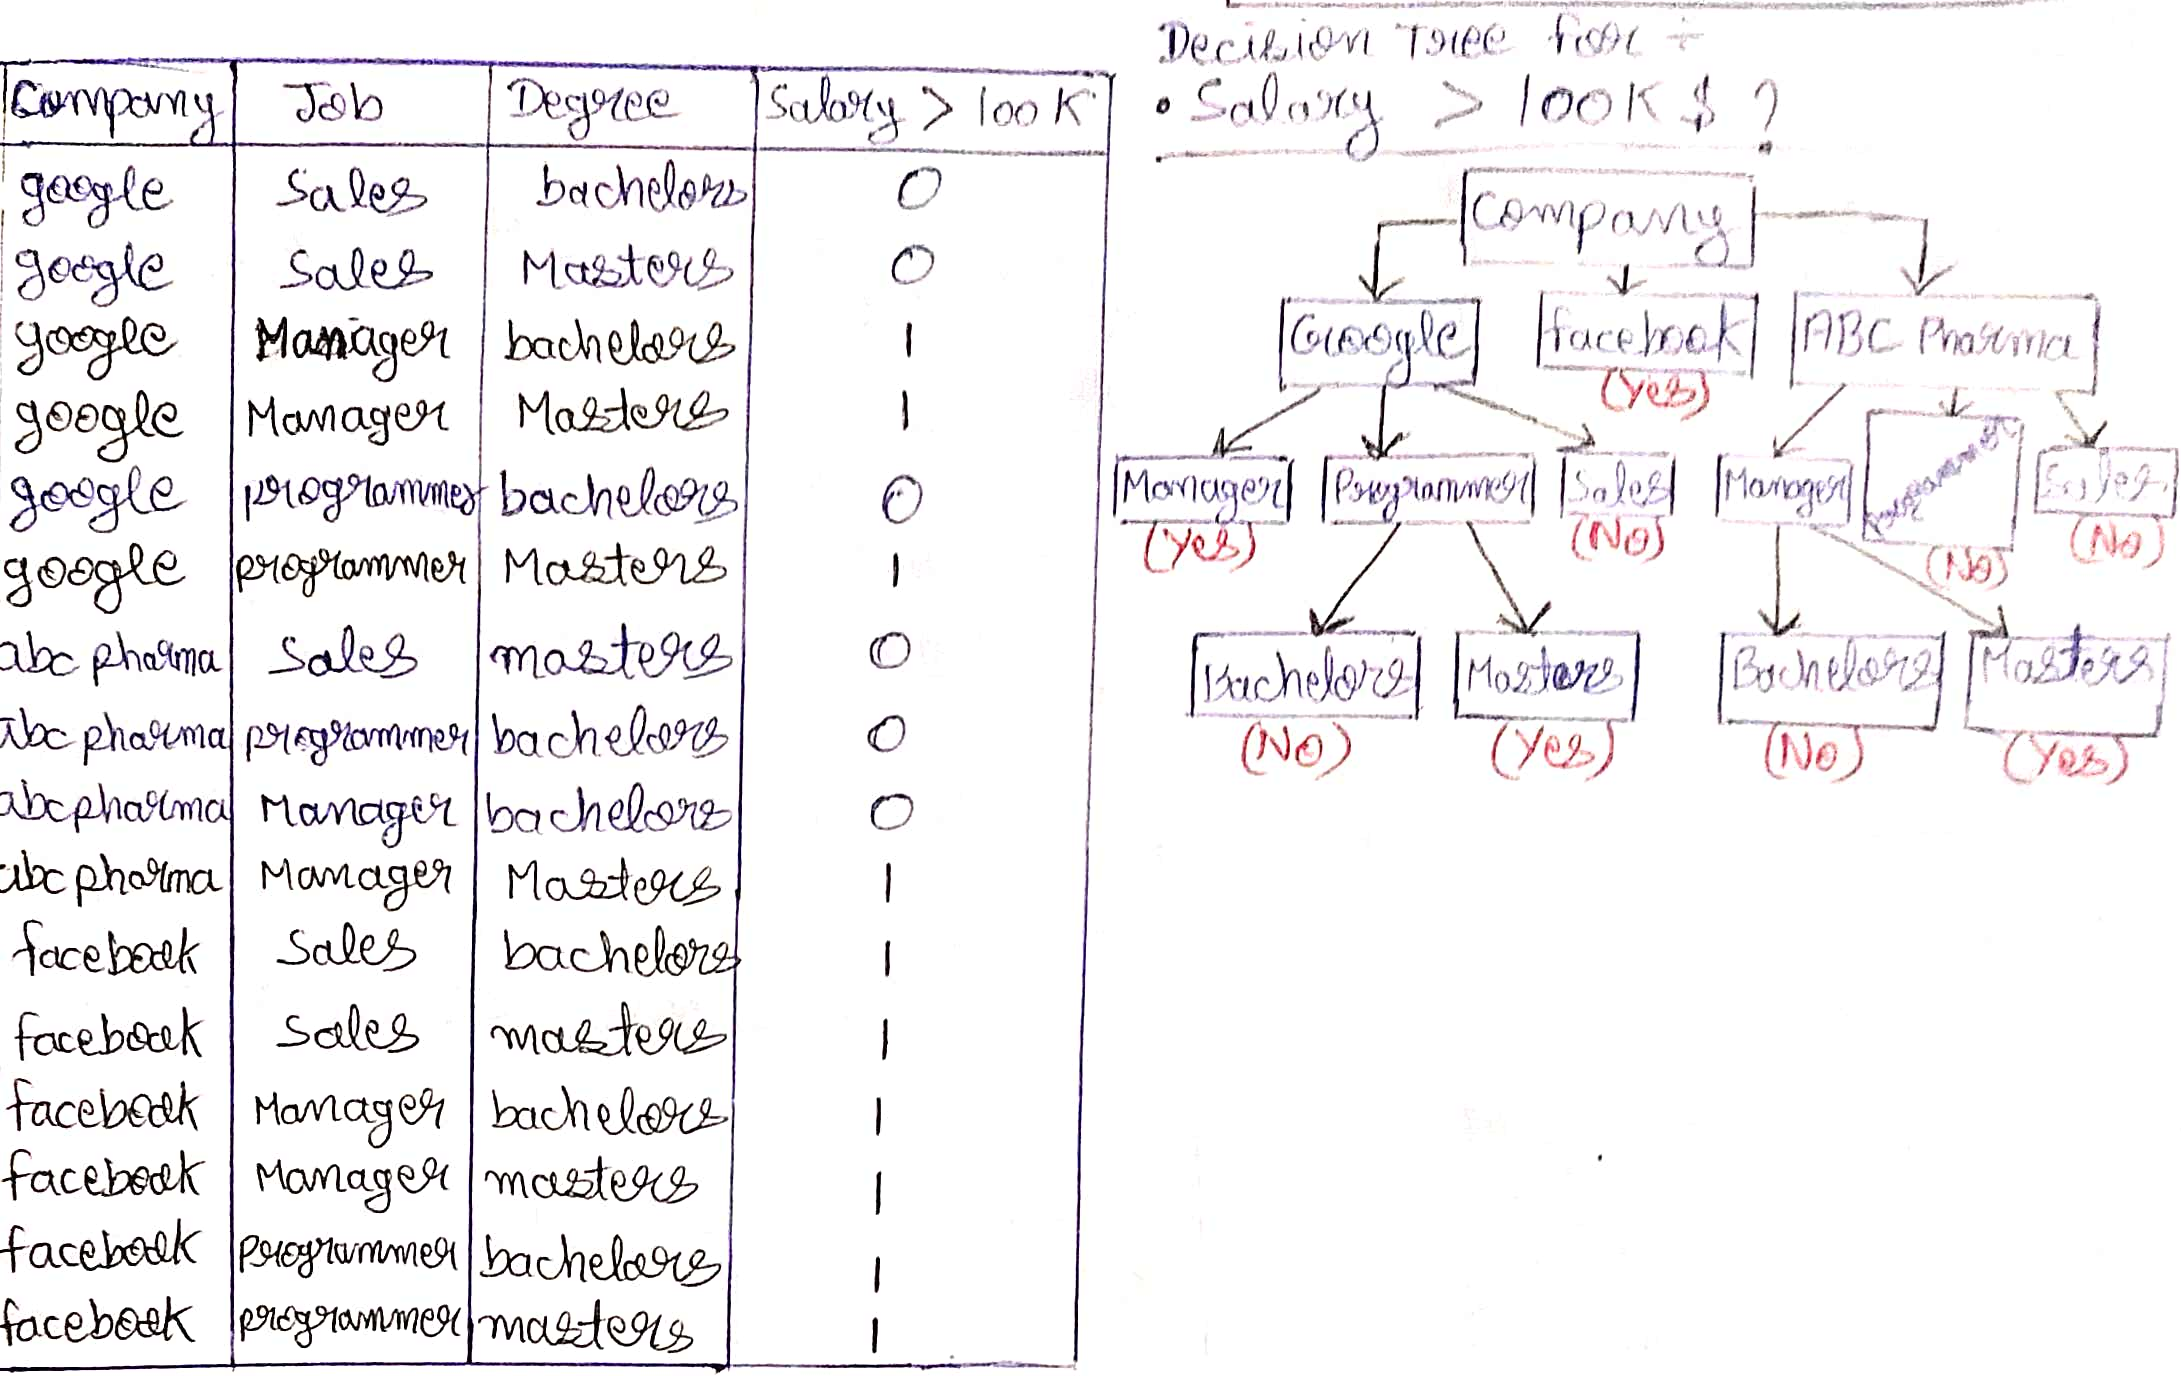 Company Job Degree Salary > 100K
google Sales bachelors 0
google Sales Masters 0
google Manager bachelors 1
google Manager Masters 1
google programmer bachelors 0
google programmer Masters 1
abc pharma Sales masters 0
abc pharma programmer bachelors 0
abc pharma Manager bachelors 0
abc pharma Manager Masters 1
facebook Sales bachelors 1
facebook Sales masters 1
facebook Manager bachelors 1
facebook Manager masters 1
facebook Programmer bachelors 1
facebook programmer masters 1
Decision Tree for ÷
• Salary > 100K $ ?
Company
Google facebook ABC Pharma
(Yes)
Manager Programmer Sales Manager Programmer Sales
(Yes) (No) (No) (No)
Bachelors Masters Bachelors Masters
(No) (Yes) (No) (Yes)